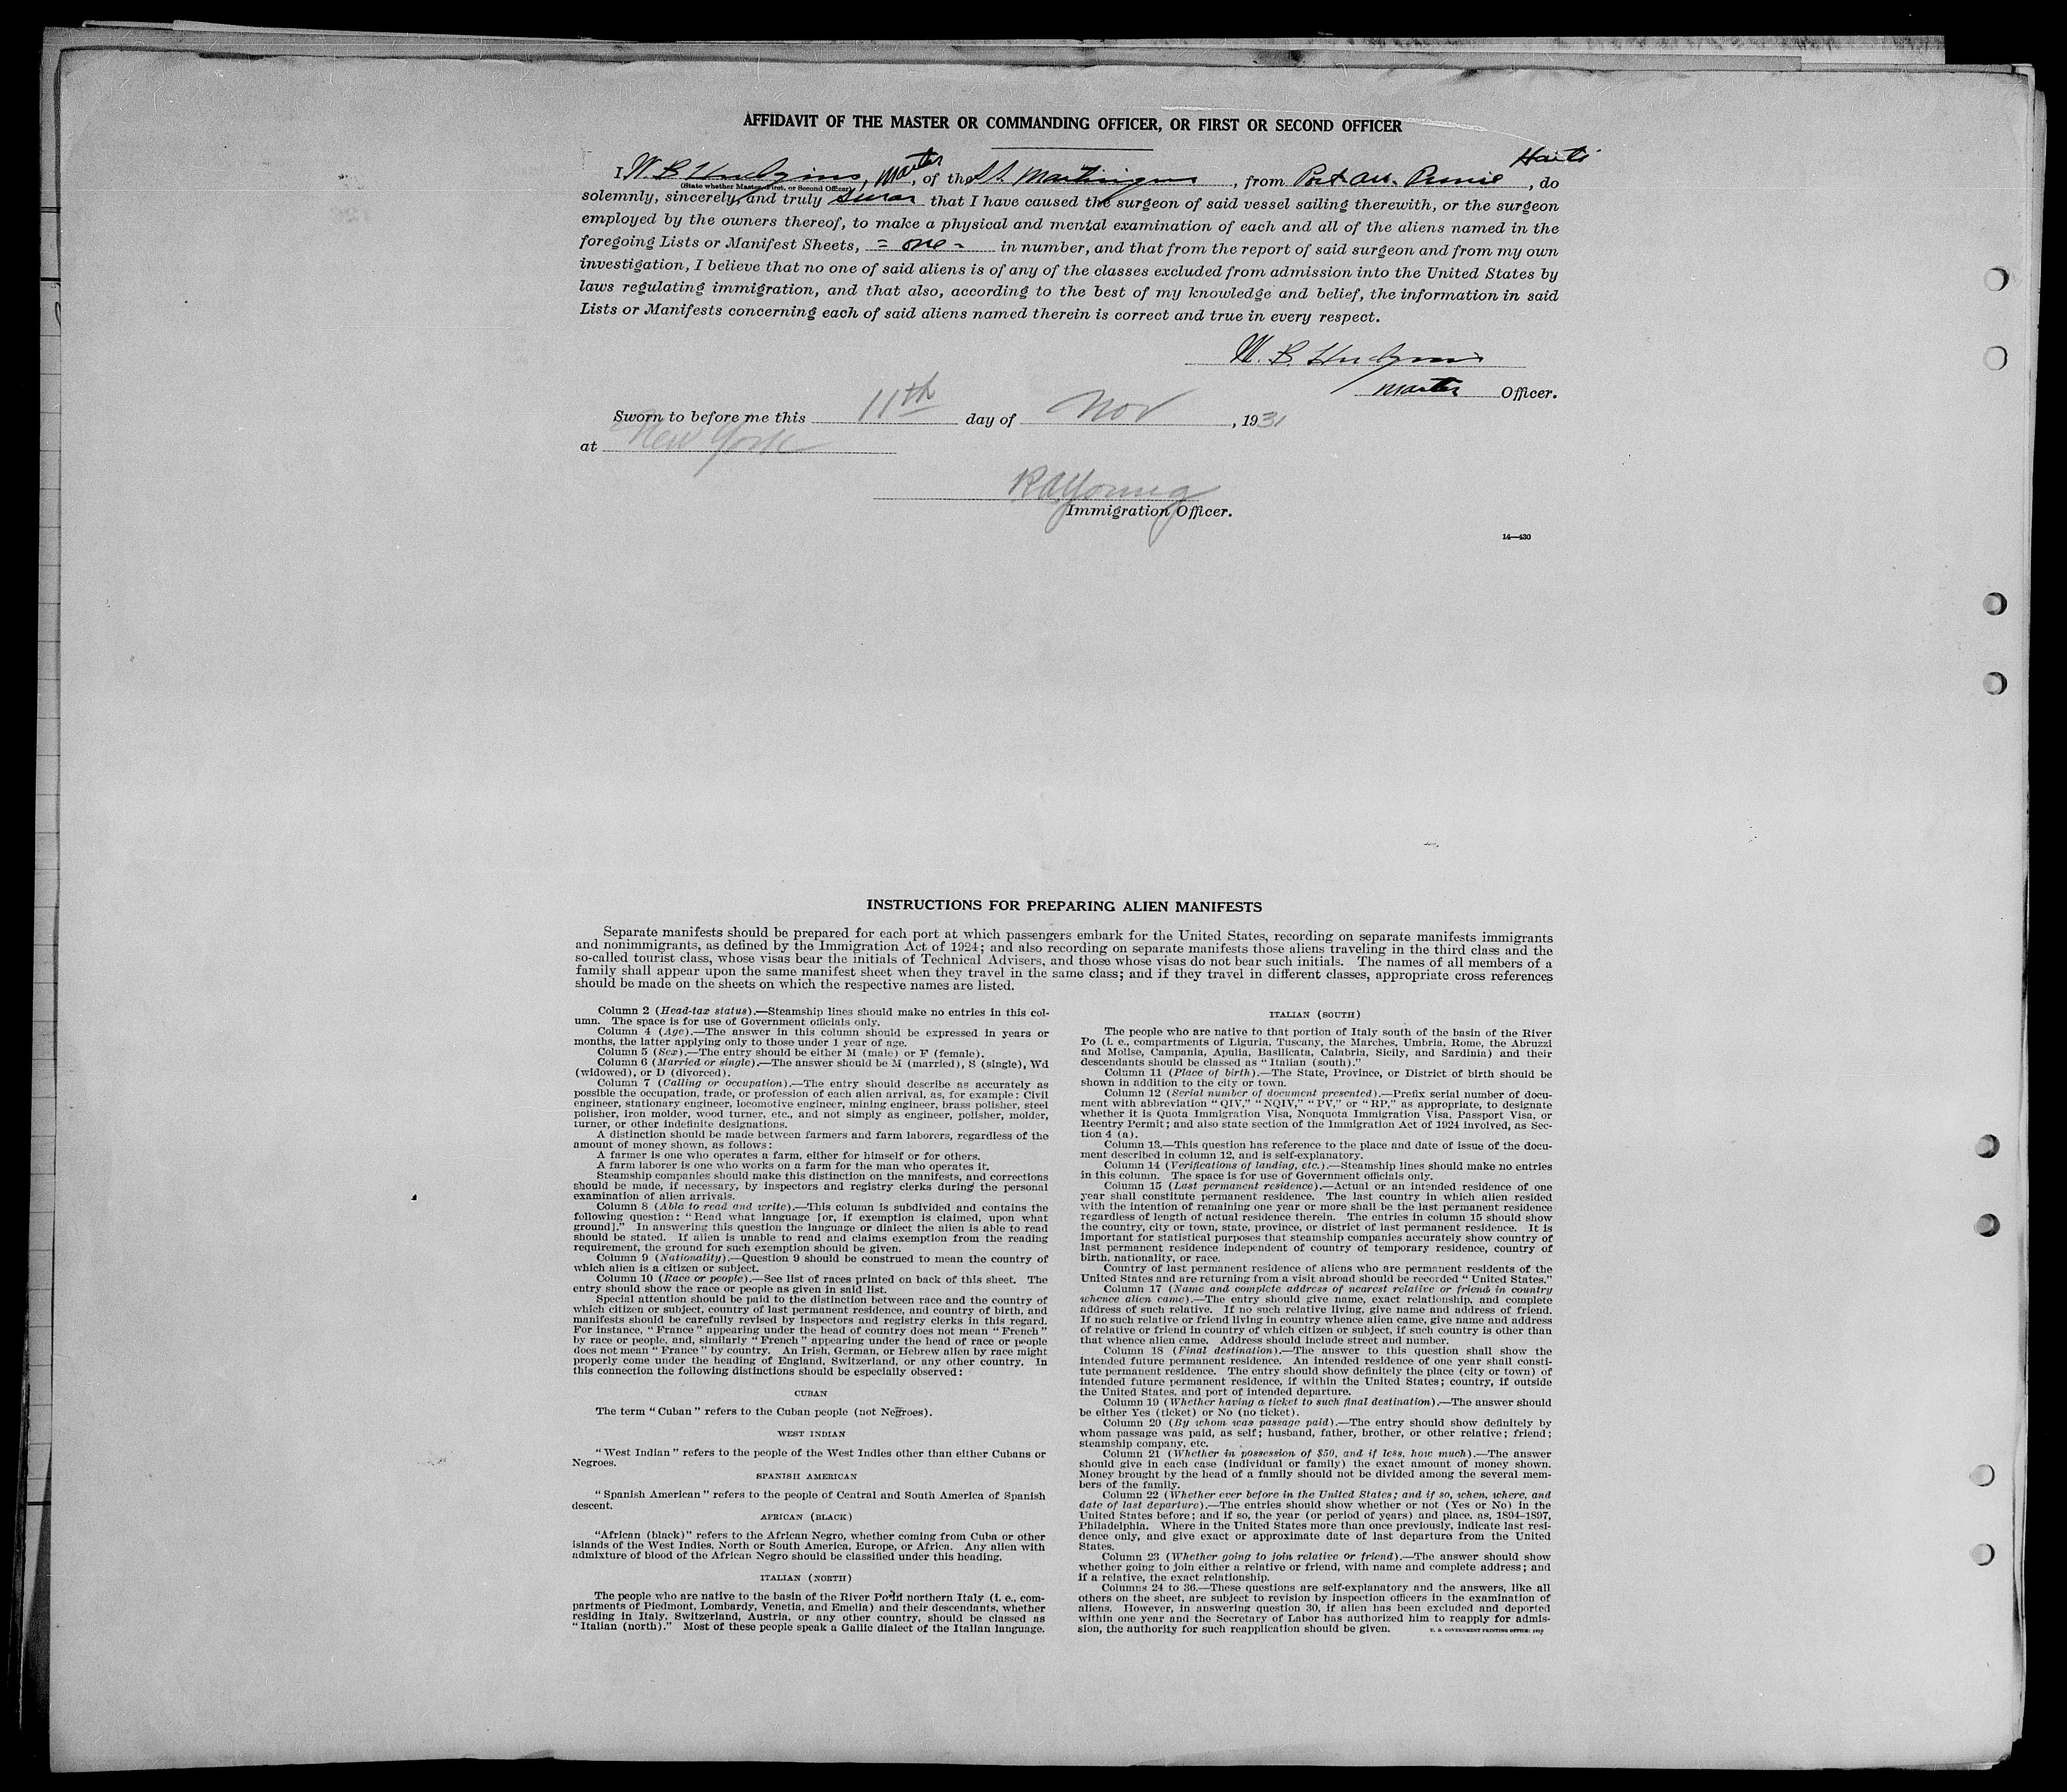 AFFIDAVIT OF THE MASTER OR COMMANDING OFFICER, OR FIRST OR SECOND OFFICER
Haiti
I, W. B. Hudgins, Master, of the S.S. Martinique, from Port au Prince, do
(State whether Master, First, or Second Officer)
solemnly, sincerely, and truly swear that I have caused the surgeon of said vessel sailing therewith, or the surgeon
employed by the owners thereof, to make a physical and mental examination of each and all of the aliens named in the
foregoing Lists or Manifest Sheets, = one = in number, and that from the report of said surgeon and from my own
investigation, I believe that no one of said aliens is of any of the classes excluded from admission into the United States by
laws regulating immigration, and that also, according to the best of my knowledge and belief, the information in said
Lists or Manifests concerning each of said aliens named therein is correct and true in every respect.
W. B. Hudgins
Master Officer.
Sworn to before me this 11th day of Nov, 1931
at New York
R A Young
Immigration Officer.
14—430
INSTRUCTIONS FOR PREPARING ALIEN MANIFESTS
Separate manifests should be prepared for each port at which passengers embark for the United States, recording on separate manifests immigrants
and nonimmigrants, as defined by the Immigration Act of 1924; and also recording on separate manifests those aliens traveling in the third class and the
so-called tourist class, whose visas bear the initials of Technical Advisers, and those whose visas do not bear such initials. The names of all members of a
family shall appear upon the same manifest sheet when they travel in the same class; and if they travel in different classes, appropriate cross references
should be made on the sheets on which the respective names are listed.
Column 2 (Head-tax status).—Steamship lines should make no entries in this col-
umn. The space is for use of Government officials only.
Column 4 (Age).—The answer in this column should be expressed in years or
months, the latter applying only to those under 1 year of age.
Column 5 (Sex).—The entry should be either M (male) or F (female).
Column 6 (Married or single).—The answer should be M (married), S (single), Wd
(widowed), or D (divorced).
Column 7 (Calling or occupation).—The entry should describe as accurately as
possible the occupation, trade, or profession of each alien arrival, as, for example: Civil
engineer, stationary engineer, locomotive engineer, mining engineer, brass polisher, steel
polisher, iron molder, wood turner, etc., and not simply as engineer, polisher, molder,
turner, or other indefinite designations.
A distinction should be made between farmers and farm laborers, regardless of the
amount of money shown, as follows:
A farmer is one who operates a farm, either for himself or for others.
A farm laborer is one who works on a farm for the man who operates it.
Steamship companies should make this distinction on the manifests, and corrections
should be made, if necessary, by inspectors and registry clerks during the personal
examination of alien arrivals.
Column 8 (Able to read and write).—This column is subdivided and contains the
following question: "Read what language [or, if exemption is claimed, upon what
ground]." In answering this question the language or dialect the alien is able to read
should be stated. If alien is unable to read and claims exemption from the reading
requirement, the ground for such exemption should be given.
Column 9 (Nationality).—Question 9 should be construed to mean the country of
which alien is a citizen or subject.
Column 10 (Race or people).—See list of races printed on back of this sheet. The
entry should show the race or people as given in said list.
Special attention should be paid to the distinction between race and the country of
which citizen or subject, country of last permanent residence, and country of birth, and
manifests should be carefully revised by inspectors and registry clerks in this regard.
For instance, "France" appearing under the head of country does not mean "French"
by race or people, and, similarly "French" appearing under the head of race or people
does not mean "France" by country. An Irish, German, or Hebrew alien by race might
properly come under the heading of England, Switzerland, or any other country. In
this connection the following distinctions should be especially observed:
CUBAN
The term "Cuban" refers to the Cuban people (not Negroes).
WEST INDIAN
"West Indian" refers to the people of the West Indies other than either Cubans or
Negroes.
SPANISH AMERICAN
"Spanish American" refers to the people of Central and South America of Spanish
descent.
AFRICAN (BLACK)
"African (black)" refers to the African Negro, whether coming from Cuba or other
islands of the West Indies, North or South America, Europe, or Africa. Any alien with
admixture of blood of the African Negro should be classified under this heading.
ITALIAN (NORTH)
The people who are native to the basin of the River Po in northern Italy (i. e., com-
partments of Piedmont, Lombardy, Venetia, and Emelia) and their descendants, whether
residing in Italy, Switzerland, Austria, or any other country, should be classed as
"Italian (north)." Most of these people speak a Gallic dialect of the Italian language.
ITALIAN (SOUTH)
The people who are native to that portion of Italy south of the basin of the River
Po (i. e., compartments of Liguria, Tuscany, the Marches, Umbria, Rome, the Abruzzi
and Molise, Campania, Apulia, Basilicata, Calabria, Sicily, and Sardinia) and their
descendants should be classed as "Italian (south)."
Column 11 (Place of birth).—The State, Province, or District of birth should be
shown in addition to the city or town.
Column 12 (Serial number of document presented).—Prefix serial number of docu-
ment with abbreviation "QIV," "NQIV," "PV," or "RP," as appropriate, to designate
whether it is Quota Immigration Visa, Nonquota Immigration Visa, Passport Visa, or
Reentry Permit; and also state section of the Immigration Act of 1924 involved, as Sec-
tion 4 (a).
Column 13.—This question has reference to the place and date of issue of the docu-
ment described in column 12, and is self-explanatory.
Column 14 (Verifications of landing, etc.).—Steamship lines should make no entries
in this column. The space is for use of Government officials only.
Column 15 (Last permanent residence).—Actual or an intended residence of one
year shall constitute permanent residence. The last country in which alien resided
with the intention of remaining one year or more shall be the last permanent residence
regardless of length of actual residence therein. The entries in column 15 should show
the country, city or town, state, province, or district of last permanent residence. It is
important for statistical purposes that steamship companies accurately show country of
last permanent residence independent of country of temporary residence, country of
birth, nationality, or race.
Country of last permanent residence of aliens who are permanent residents of the
United States and are returning from a visit abroad should be recorded "United States."
Column 17 (Name and complete address of nearest relative or friend in country
whence alien came).—The entry should give name, exact relationship, and complete
address of such relative. If no such relative living, give name and address of friend.
If no such relative or friend living in country whence alien came, give name and address
of relative or friend in country of which citizen or subject, if such country is other than
that whence alien came. Address should include street and number.
Column 18 (Final destination).—The answer to this question shall show the
intended future permanent residence. An intended residence of one year shall consti-
tute permanent residence. The entry should show definitely the place (city or town) of
intended future permanent residence, if within the United States; country, if outside
the United States, and port of intended departure.
Column 19 (Whether having a ticket to such final destination).—The answer should
be either Yes (ticket) or No (no ticket).
Column 20 (By whom was passage paid).—The entry should show definitely by
whom passage was paid, as self; husband, father, brother, or other relative; friend;
steamship company, etc.
Column 21 (Whether in possession of $50, and if less, how much).—The answer
should give in each case (individual or family) the exact amount of money shown.
Money brought by the head of a family should not be divided among the several mem-
bers of the family.
Column 22 (Whether ever before in the United States; and if so, when, where, and
date of last departure).—The entries should show whether or not (Yes or No) in the
United States before; and if so, the year (or period of years) and place, as, 1894–1897,
Philadelphia. Where in the United States more than once previously, indicate last resi-
dence only, and give exact or approximate date of last departure from the United
States.
Column 23 (Whether going to join relative or friend).—The answer should show
whether going to join either a relative or friend, with name and complete address; and
if a relative, the exact relationship.
Columns 24 to 36.—These questions are self-explanatory and the answers, like all
others on the sheet, are subject to revision by inspection officers in the examination of
aliens. However, in answering question 30, if alien has been excluded and deported
within one year and the Secretary of Labor has authorized him to reapply for admis-
sion, the authority for such reapplication should be given.
U. S. GOVERNMENT PRINTING OFFICE: